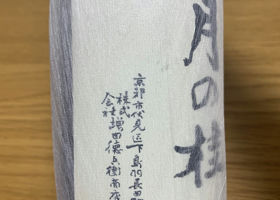 月の桂
京都市伏見区下鳥羽長田町
株式
会社
増田德兵衛商店